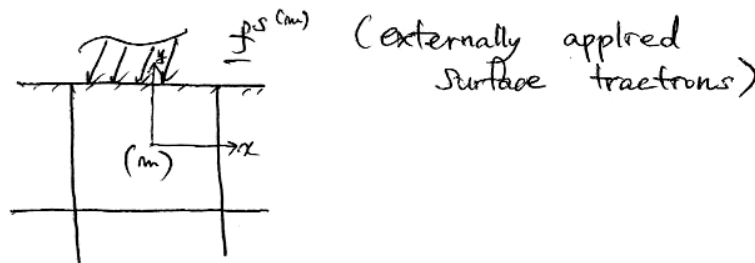 f^s(m) (externally applied
surface tractions)
y
(m) x